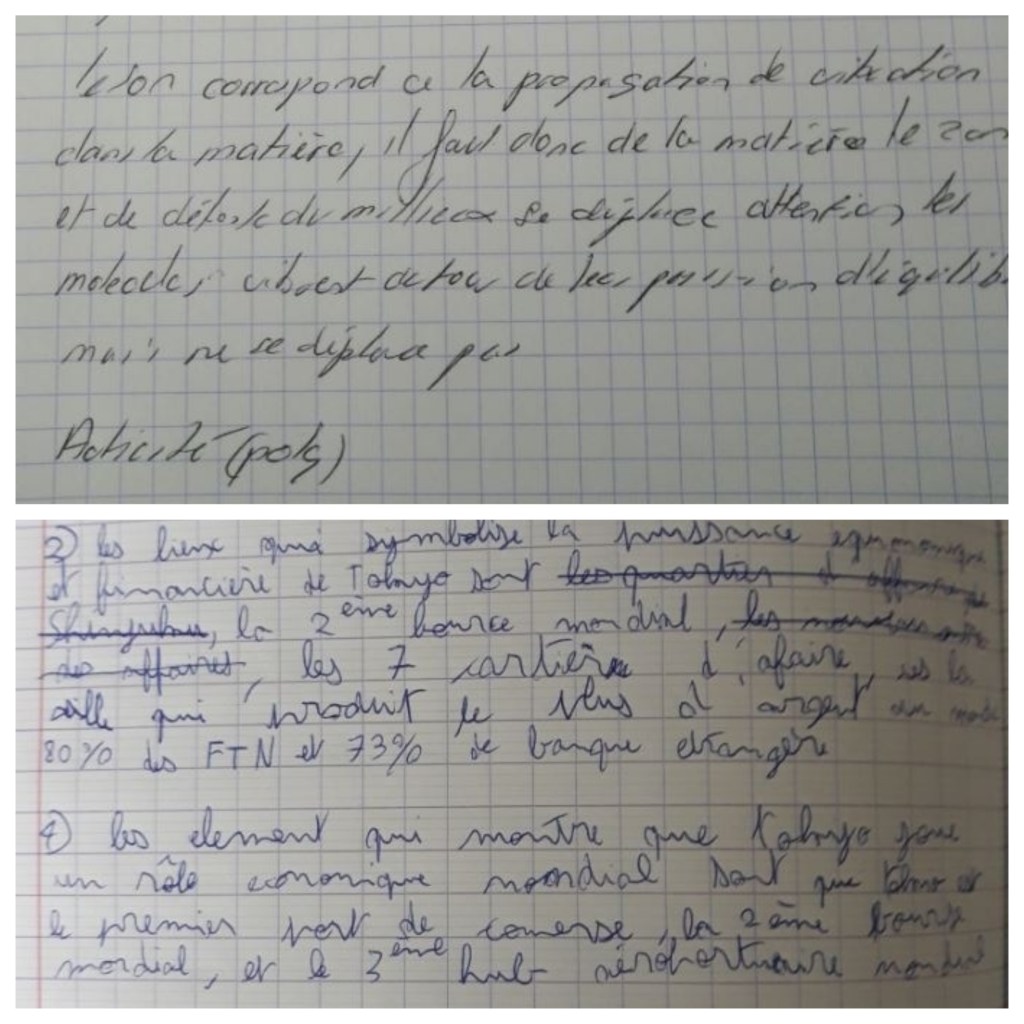 le son correspond a la propagation de vibration
dans la matière, il faut donc de la matière le son
et de du millieux se déplace attention les
molecule, vibrent autour de leur possition d'équilib
mais ne se déplace pas
Activité (pdf)
3) les lieux qui symbolise la puissance
et financière de Tokuyo sont les quartier d'affaire
Shinjuku, la 2ème bource mondial, les
des affaires, les 7 cartière d'afaire, la
ville qui produit le plus d'argent au monde
80% des FTN et 73% de banque etrangère
4) les element qui montre que Tokuyo joue
un rôle economique mondial sont que est
le premier port de comerse, la 2ème bourse
mondial, et le 3ème hub aéroportuaire mondial